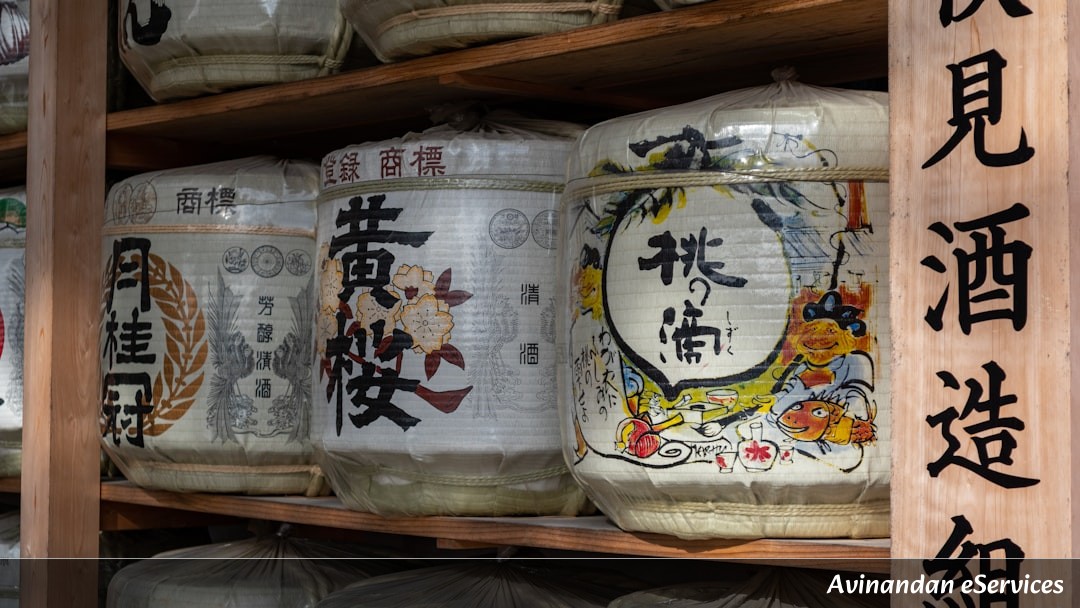 商標
月桂冠
芳醇清酒
登録 商標
黄桜
清酒
桃の滴
しずく
見酒造組
Avinandan eServices